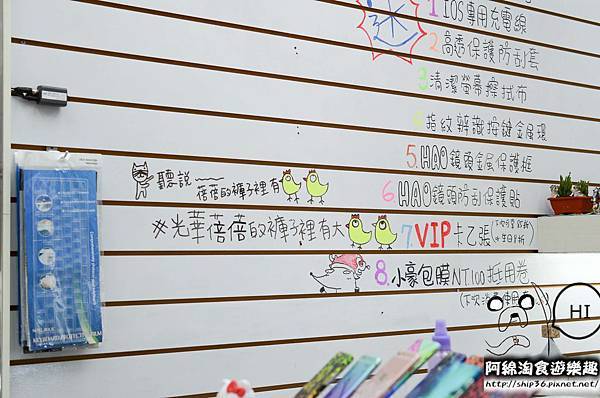 1 IOS專用充電線
2.高透保護防刮套
3.清潔螢幕擦拭布
4.指紋辨識按鍵金屬環
5.HAO鏡頭金屬保護框
聽說~
蓓蓓的褲子裡有
6.HAO鏡頭防刮保護貼
※光華蓓蓓的褲子裡有大
7.VIP卡乙張
8.小豪包膜NT100抵用卷
HI
阿綿淘食遊樂趣
http://ship36.pixnet.net/